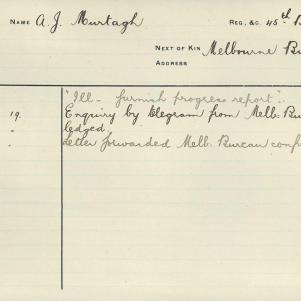 NAME A. J. Murtagh REG. &C. 45th B
NEXT OF KIN Melbourne Bu
ADDRESS
"Ill - furnish progress report".
19. Enquiry by telegram from Melb: Bu
" ledged.
" Letter forwarded Melb. Bureau conf